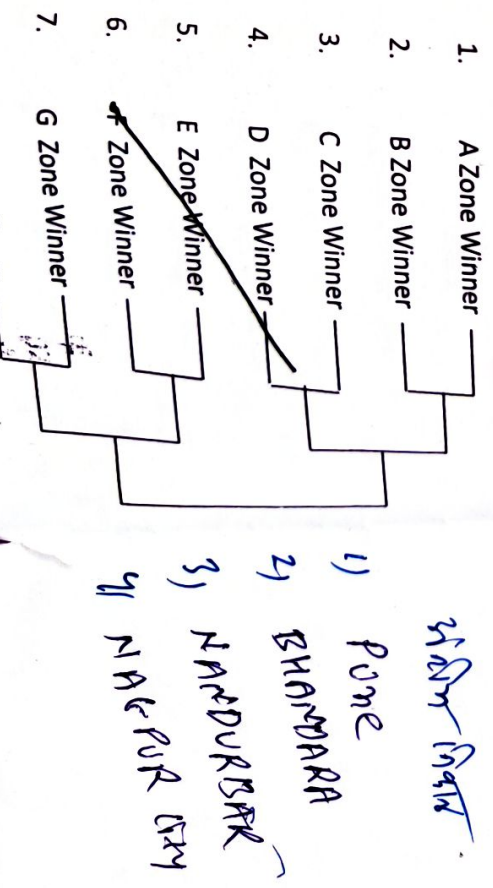 1. A Zone Winner
2. B Zone Winner
3. C Zone Winner
4. D Zone Winner
5. E Zone Winner
6. F Zone Winner
7. G Zone Winner
अंतिम निकाल
1) PUNE
2) BHANDARA
3) NANDURBAR
4) NAGPUR